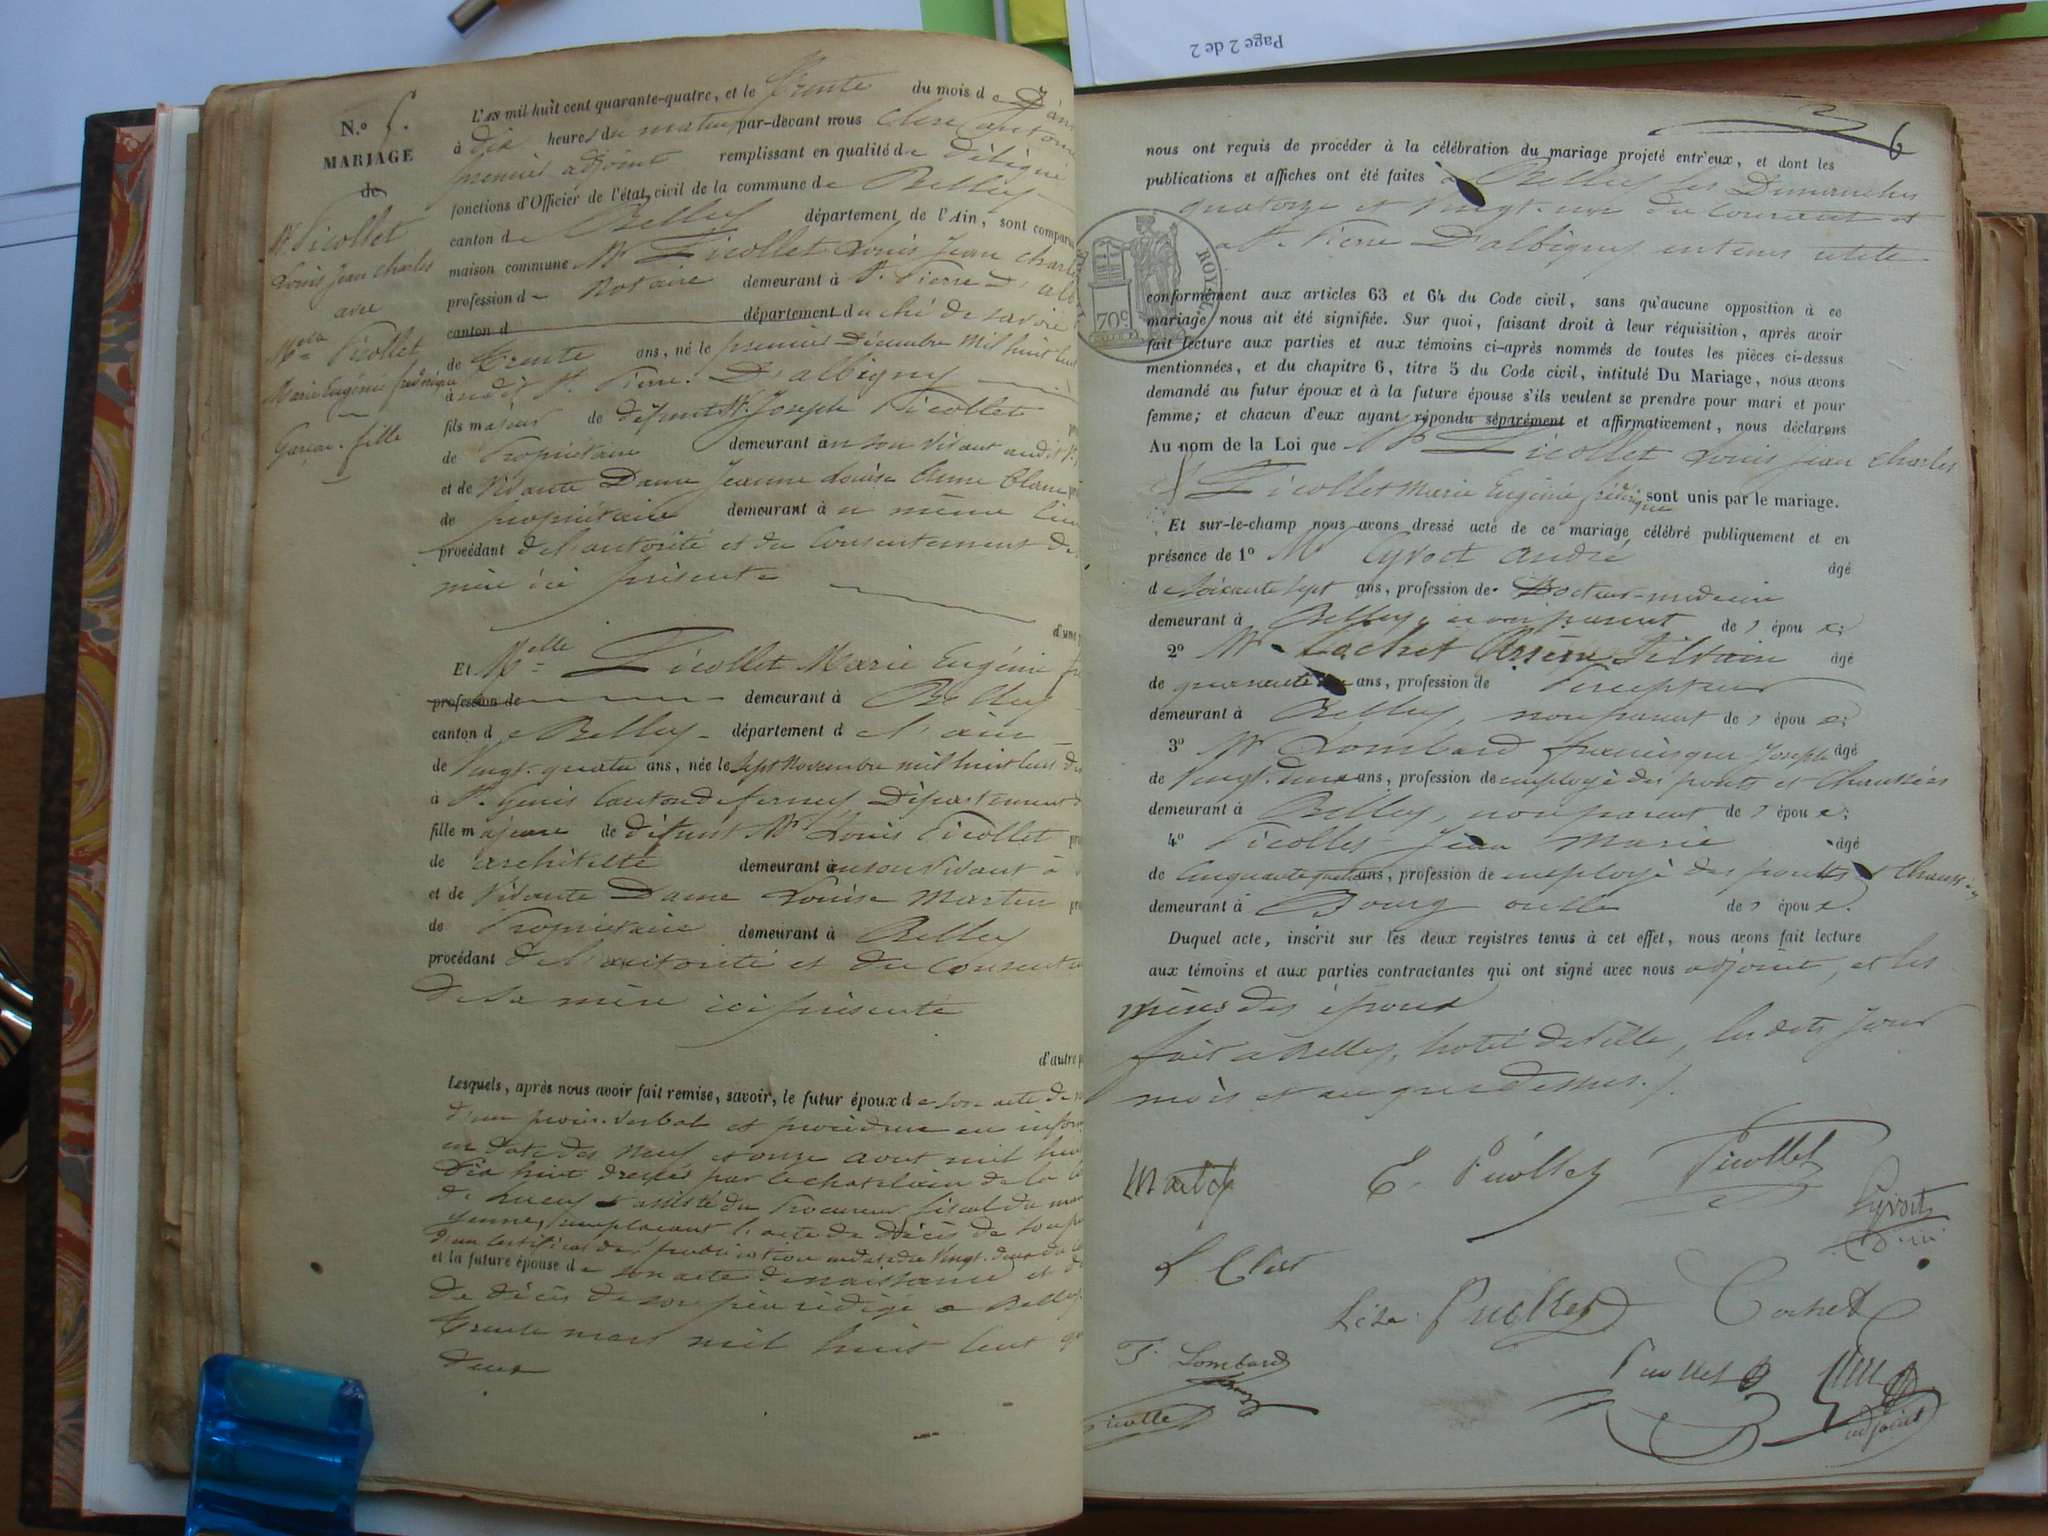 Page 2 de 2
N.º 5.
MARIAGE
de
Mr Picollet
Louis Jean Charles
avec
Melle Picollet
Marie Eugénie frédérique
Garçon. fille
L'AN mil huit cent quarante-quatre, et le Trente du mois de Jan
à dix heures du matin par-devant nous Clerc antoine
premier adjoint remplissant en qualité de délégué
fonctions d'Officier de l'état civil de la commune de Belley
canton de Belley département de l'Ain, sont comparus
maison commune Mr Picollet Louis Jean Charles
profession de Notaire demeurant à St. Pierre D'alb
canton d département du ché de savoie
de trente ans, né le premier Décembre mil huit cent
à udit St. Pierre D'albigny
fils majeur de défunt Mr Joseph Picollet
de Propriétaire demeurant à en son vivant audit St.
et de vivante Dame Jeanne Louise Anne Blanc
de propriétaire demeurant à u même lieu
procédant de l'autorité et du consentement de
mère ici présente
d'une
Et Melle Picollet Marie Eugénie fré
profession de demeurant à Belley
canton de Belley département de l'ain
de Vingt-quatre ans, née le sept Novembre mil huit cent di
à St. Genis Canton de ferney Département d
fille majeure de défunt Mr Louis Picollet
de architecte demeurant à en son vivant à
et de vivante Dame Louise Martin
de Propriétaire demeurant à Belley
procédant de l'autorité et du consente
de sa mère ici présente
d'autre p
Lesquels, après nous avoir fait remise, savoir, le futur époux de son acte de n
d'un procès-verbal et procédure en infor
en date des neuf et onze aout mil huit
dix huit dressés par le chatelain de la
de assisté du Procureur fiscal du man
yenne, remplacant l'acte de décès de son pè
d'un certificat de publication en date du vingt-deux du
et la future épouse de son acte de naissance et d
de décès de son père rédigé à Belley
trente mars mil huit cent qu
deux
6
nous ont requis de procéder à la célébration du mariage projeté entr'eux, et dont les
publications et affiches ont été faites à Belley les Dimanches
quatorze et vingt-un du courant et
a St. Pierre D'albigny
ROYAL
70c
conformément aux articles 63 et 64 du Code civil, sans qu'aucune opposition à ce
mariage nous ait été signifiée. Sur quoi, faisant droit à leur réquisition, après avoir
fait lecture aux parties et aux témoins ci-après nommés de toutes les pièces ci-dessus
mentionnées, et du chapitre 6, titre 5 du Code civil, intitulé Du Mariage, nous avons
demandé au futur époux et à la future épouse s'ils veulent se prendre pour mari et pour
femme; et chacun d'eux ayant répondu séparément et affirmativement, nous déclarons
Au nom de la Loi que Mr Picollet Louis Jean Charles
et Picollet Marie Eugénie frédérique sont unis par le mariage.
Et sur-le-champ nous avons dressé acte de ce mariage célébré publiquement et en
présence de 1º Mr Cyvoct andré âgé
de Soixante sept ans, profession de Docteur-médecin
demeurant à Belley, non parent des époux;
2º Mr Cochet Arsène Silvain âgé
de quarante ans, profession de Percepteur
demeurant à Belley, non parent des époux;
3º Mr Lombard francisque Joseph âgé
de vingt-deux ans, profession de employé des ponts et Chaussées
demeurant à Belley, non parent des époux;
4º Picollet Jean Marie âgé
de Cinquante quatre ans, profession de employé des ponts et Chaussées
demeurant à Bourg oncle des époux.
Duquel acte, inscrit sur les deux registres tenus à cet effet, nous avons fait lecture
aux témoins et aux parties contractantes qui ont signé avec nous adjoint, et les
mères des époux
fait à Belley, hotel de ville, les dits jour
mois et an que dessus./.
E. Picollet
Picollet
Cyvoct
L Clerc
Liza Picollet
Cochet
F. Lombard
Picollet
Picollet
adjoint